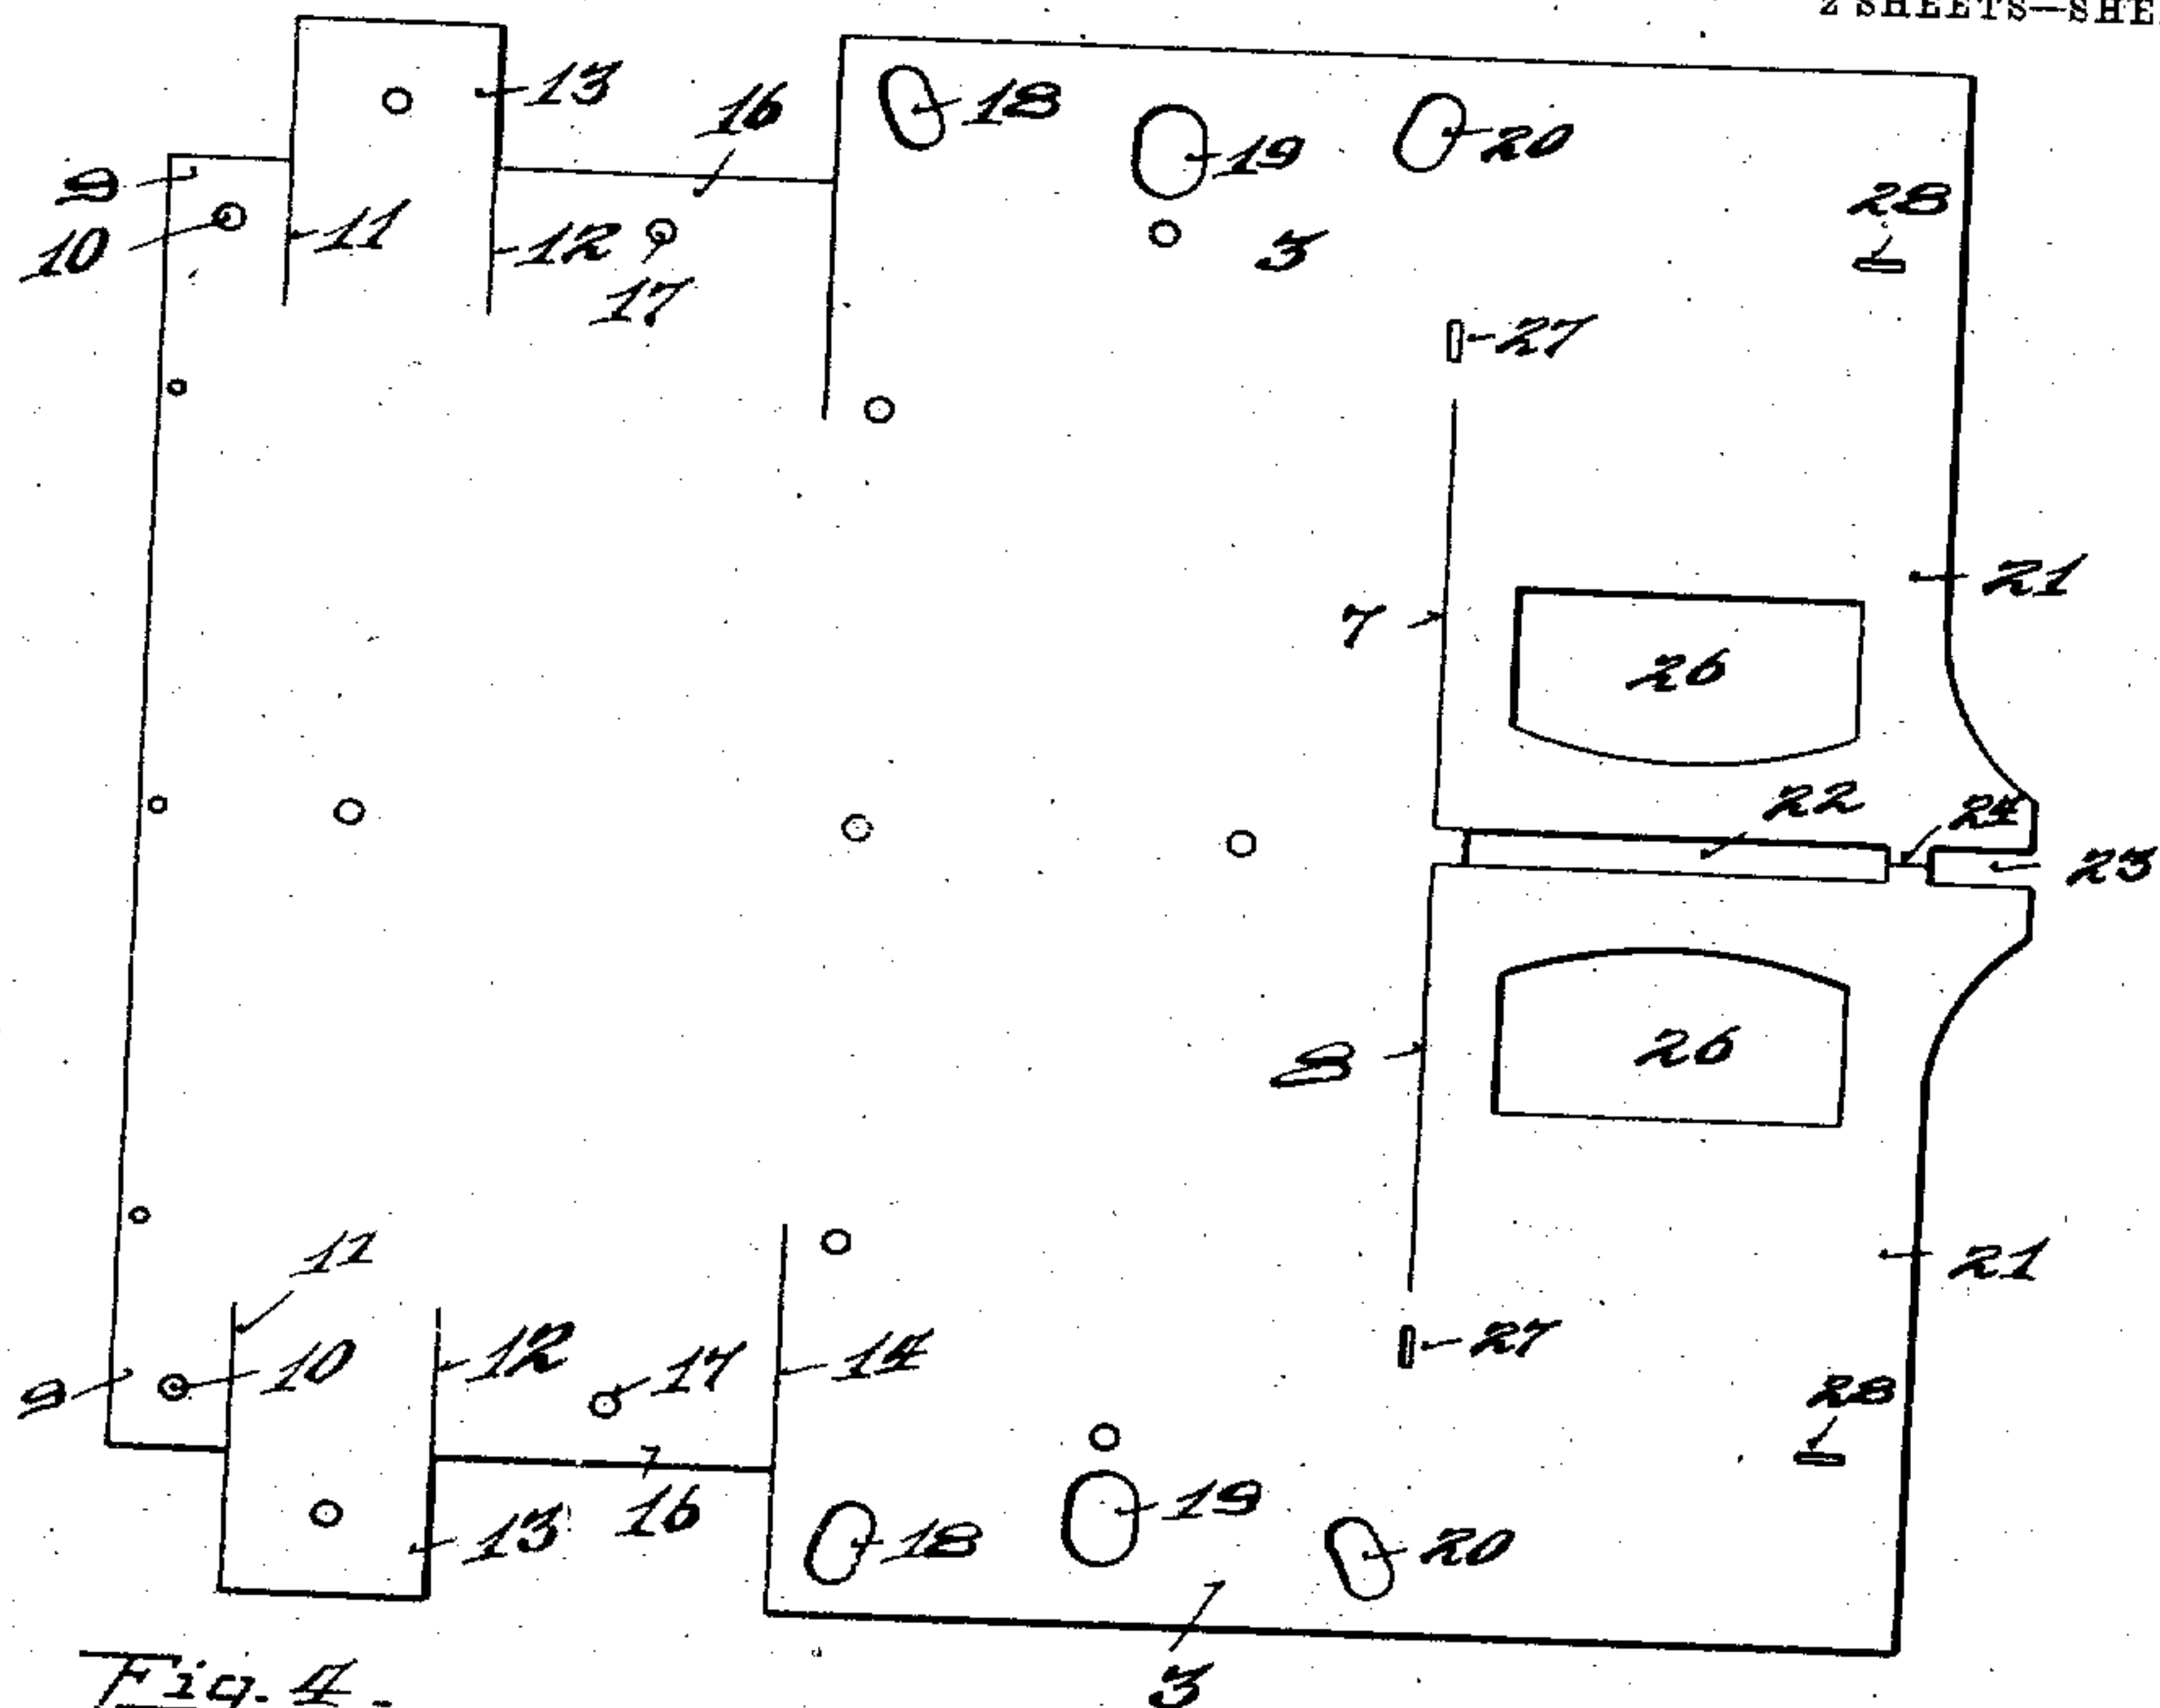 2 SHEETS—SHE
13
16
18
19
20
9
10
11
12
17
3
28
27
21
7
26
22
24
23
8
26
21
11
10
12
17
14
27
28
9
13
16
18
19
20
3
Fig. 4.